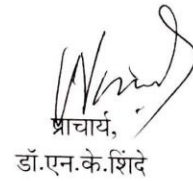 प्राचार्य,
डॉ.एन.के.शिंदे